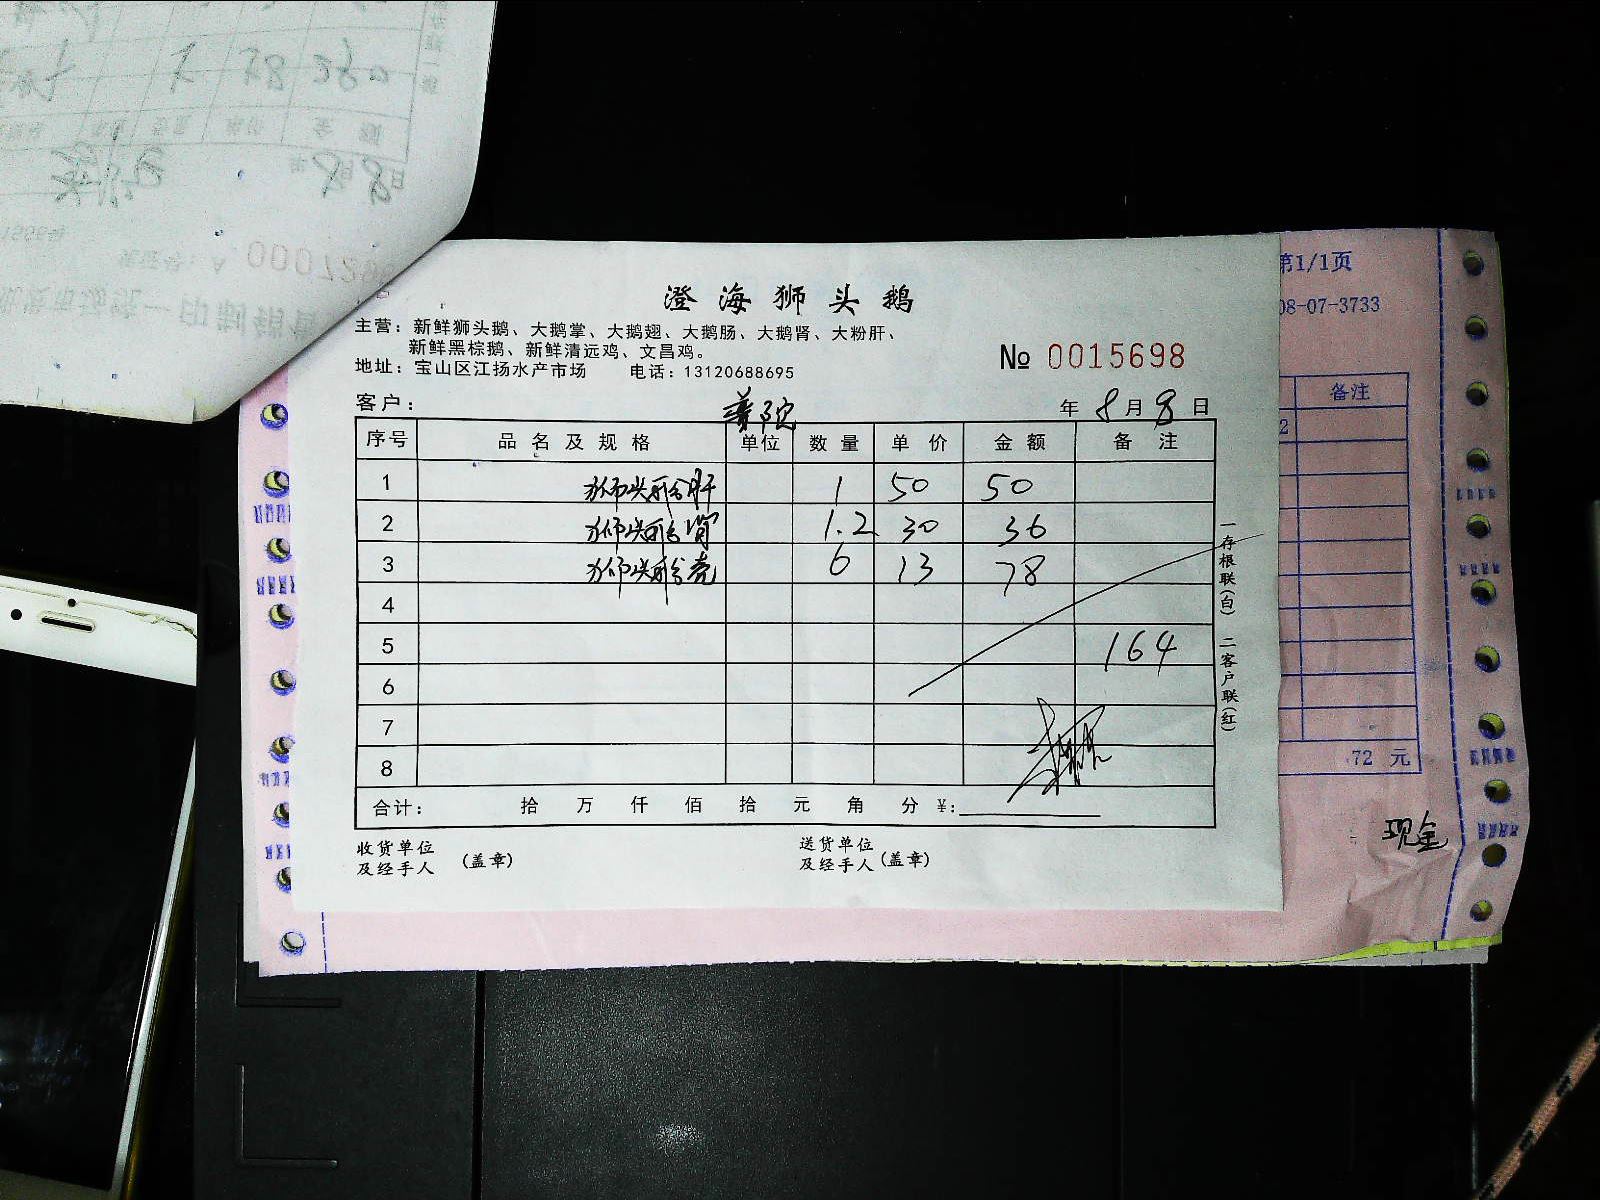 大 58 360
金 额
8月8日
A 000729
统一印制销售
第1/1页
08-07-3733
备注
2
72 元
现金
澄海狮头鹅
主营：新鲜狮头鹅、大鹅掌、大鹅翅、大鹅肠、大鹅肾、大粉肝、
新鲜黑棕鹅、新鲜清远鸡、文昌鸡。
地址：宝山区江扬水产市场 电话：13120688695
№ 0015698
客户： 普陀 年 8 月 8 日
序号 品名及规格 单位 数量 单价 金额 备注
1 狮头鹅肝 1 50 50
2 狮头鹅肾 1.2 30 36
3 狮头鹅壳 6 13 78
4
5 164
6
7
8
合计： 拾 万 仟 佰 拾 元 角 分 ¥:
一存根联(白) 二客户联(红)
收货单位
及经手人 (盖章)
送货单位
及经手人 (盖章)